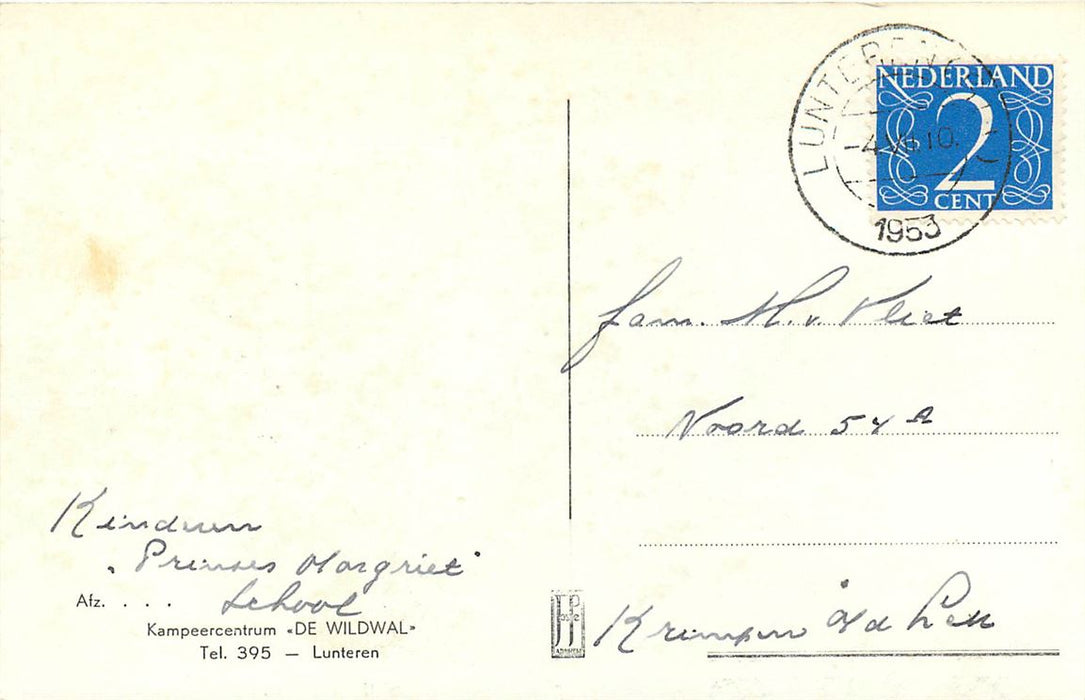 LUNTEREN
-4.VII.10.
1953
NEDERLAND
2
CENT
fam. M. v. Vliet
Noord 54 A
Krimpen a/d Lek
Kinderen
"Prinses Margriet"
School
Afz. . . .
Kampeercentrum «DE WILDWAL»
Tel. 395 — Lunteren
JP
ARNHEM